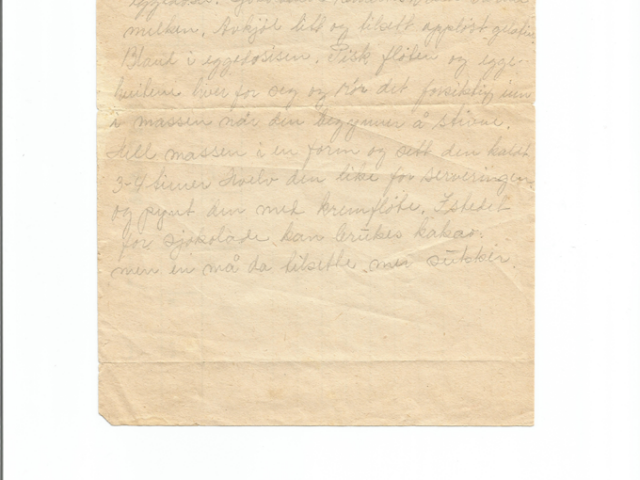 eggedosis.
melken. Avkjøl litt og tilsett oppløst gelatin
Bland i eggedosisen. Pisk fløten og egge-
hvitene hver for seg og rør det forsiktig inn
i massen når den begynner å stivne.
Hell massen i en form og sett den kaldt
3-4 timer Hvelv den like før serveringen
og pynt den med kremfløte. Istedet
for sjokolade kan brukes kakao.
men en må da tilsette mer sukker.